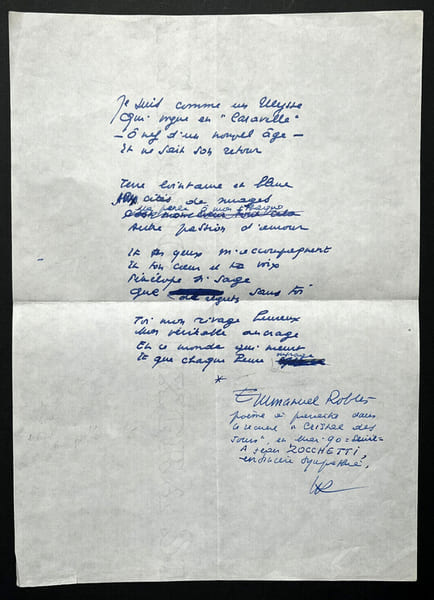 Je suis comme un Ulysse
Qui vogue en "Caravelle"
— Ô nef d'un nouvel âge —
Et ne sait son retour
Terre lointaine et bleue
Aux cités de nuages
Autre passion d'amour
Et tes yeux m'accompagnent
Et ton cœur et ta voix
Pénélope si sage
Que de regrets sans toi
Toi mon rivage heureux
Mon véritable ancrage
En ce monde qui meurt
Et que chaque heure
*
Emmanuel Roblès
poème à paraître dans
le recueil "Cristal des
jours", en mai-90=Seuil=
A Jean ZOCCHETTI,
en sincère sympathie,